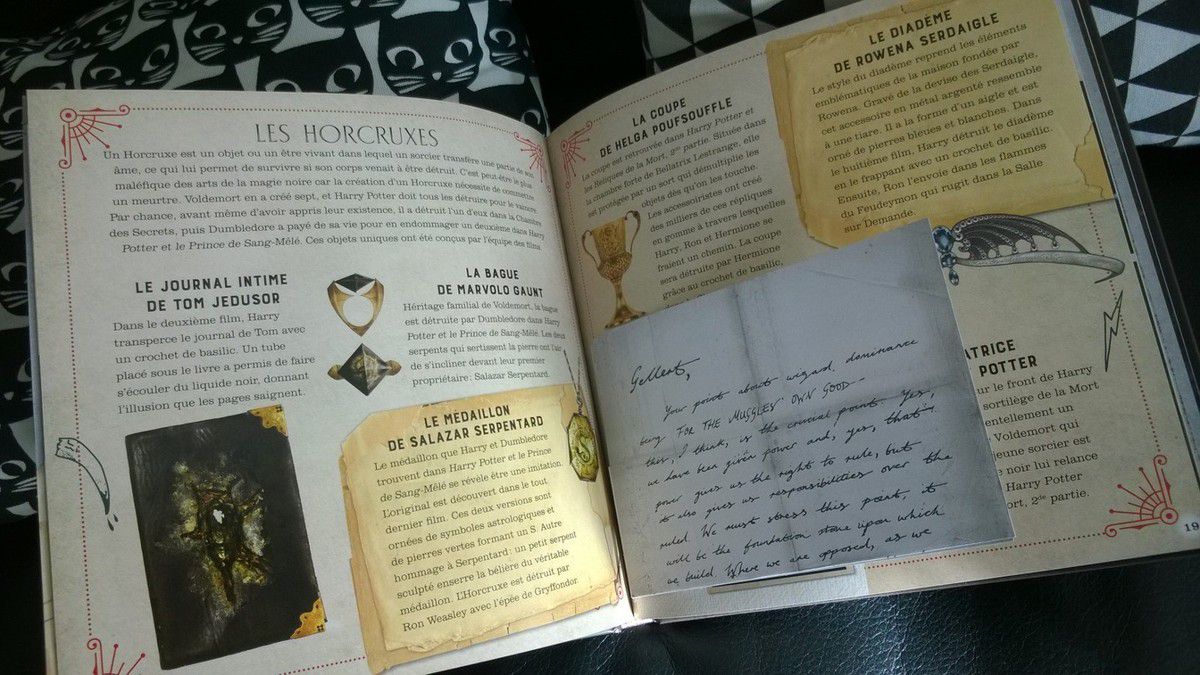 LES HORCRUXES
Un Horcruxe est un objet ou un être vivant dans lequel un sorcier transfère une partie de son
âme, ce qui lui permet de survivre si son corps venait à être détruit. C'est peut-être le plus
maléfique des arts de la magie noire car la création d'un Horcruxe nécessite de commettre
un meurtre. Voldemort en a créé sept, et Harry Potter doit tous les détruire pour le vaincre.
Par chance, avant même d'avoir appris leur existence, il a détruit l'un d'eux dans la Chambre
des Secrets, puis Dumbledore a payé de sa vie pour en endommager un deuxième dans Harry
Potter et le Prince de Sang-Mêlé. Ces objets uniques ont été conçus par l'équipe des films.
LE JOURNAL INTIME
DE TOM JEDUSOR
Dans le deuxième film, Harry
transperce le journal de Tom avec
un crochet de basilic. Un tube
placé sous le livre a permis de faire
s'écouler du liquide noir, donnant
l'illusion que les pages saignent.
LA BAGUE
DE MARVOLO GAUNT
Héritage familial de Voldemort, la bague
est détruite par Dumbledore dans Harry
Potter et le Prince de Sang-Mêlé. Les deux
serpents qui sertissent la pierre ont l'air
de s'incliner devant leur premier
propriétaire : Salazar Serpentard.
LE MÉDAILLON
DE SALAZAR SERPENTARD
Le médaillon que Harry et Dumbledore
trouvent dans Harry Potter et le Prince
de Sang-Mêlé se révèle être une imitation.
L'original est découvert dans le tout
dernier film. Ces deux versions sont
ornées de symboles astrologiques et
de pierres vertes formant un S. Autre
hommage à Serpentard : un petit serpent
sculpté enserre la bélière du véritable
médaillon. L'Horcruxe est détruit par
Ron Weasley avec l'épée de Gryffondor.
LA COUPE
DE HELGA POUFSOUFFLE
La coupe est retrouvée dans Harry Potter et
les Reliques de la Mort, 2de partie. Située dans
la chambre forte de Bellatrix Lestrange, elle
est protégée par un sort qui démultiplie les
objets dès qu'on les touche.
Les accessoiristes ont créé
des milliers de ces répliques
en gomme à travers lesquelles
Harry, Ron et Hermione se
fraient un chemin. La coupe
sera détruite par Hermione
grâce au crochet de basilic,
LE DIADÈME
DE ROWENA SERDAIGLE
Le style du diadème reprend les éléments
emblématiques de la maison fondée par
Rowena. Gravé de la devise des Serdaigle,
cet accessoire en métal argenté ressemble
à une tiare. Il a la forme d'un aigle et est
orné de pierres bleues et blanches. Dans
le huitième film, Harry détruit le diadème
en le frappant avec un crochet de basilic.
Ensuite, Ron l'envoie dans les flammes
du Feudeymon qui rugit dans la Salle
sur Demande.
Gellert,
Your point about wizard dominance
being FOR THE MUGGLES' OWN GOOD--
this, I think, is the crucial point. Yes,
we have been given power and, yes, that
power gives us the right to rule, but
to also gives us responsibilities over the
ruled. We must stress this point, it
will be the foundation stone upon which
we build. Where we are opposed, as we
ATRICE
POTTER
ur le front de Harry
sortilège de la Mort
entellement un
Voldemort qui
jeune sorcier est
e noir lui relance
Harry Potter
ort, 2de partie.
19